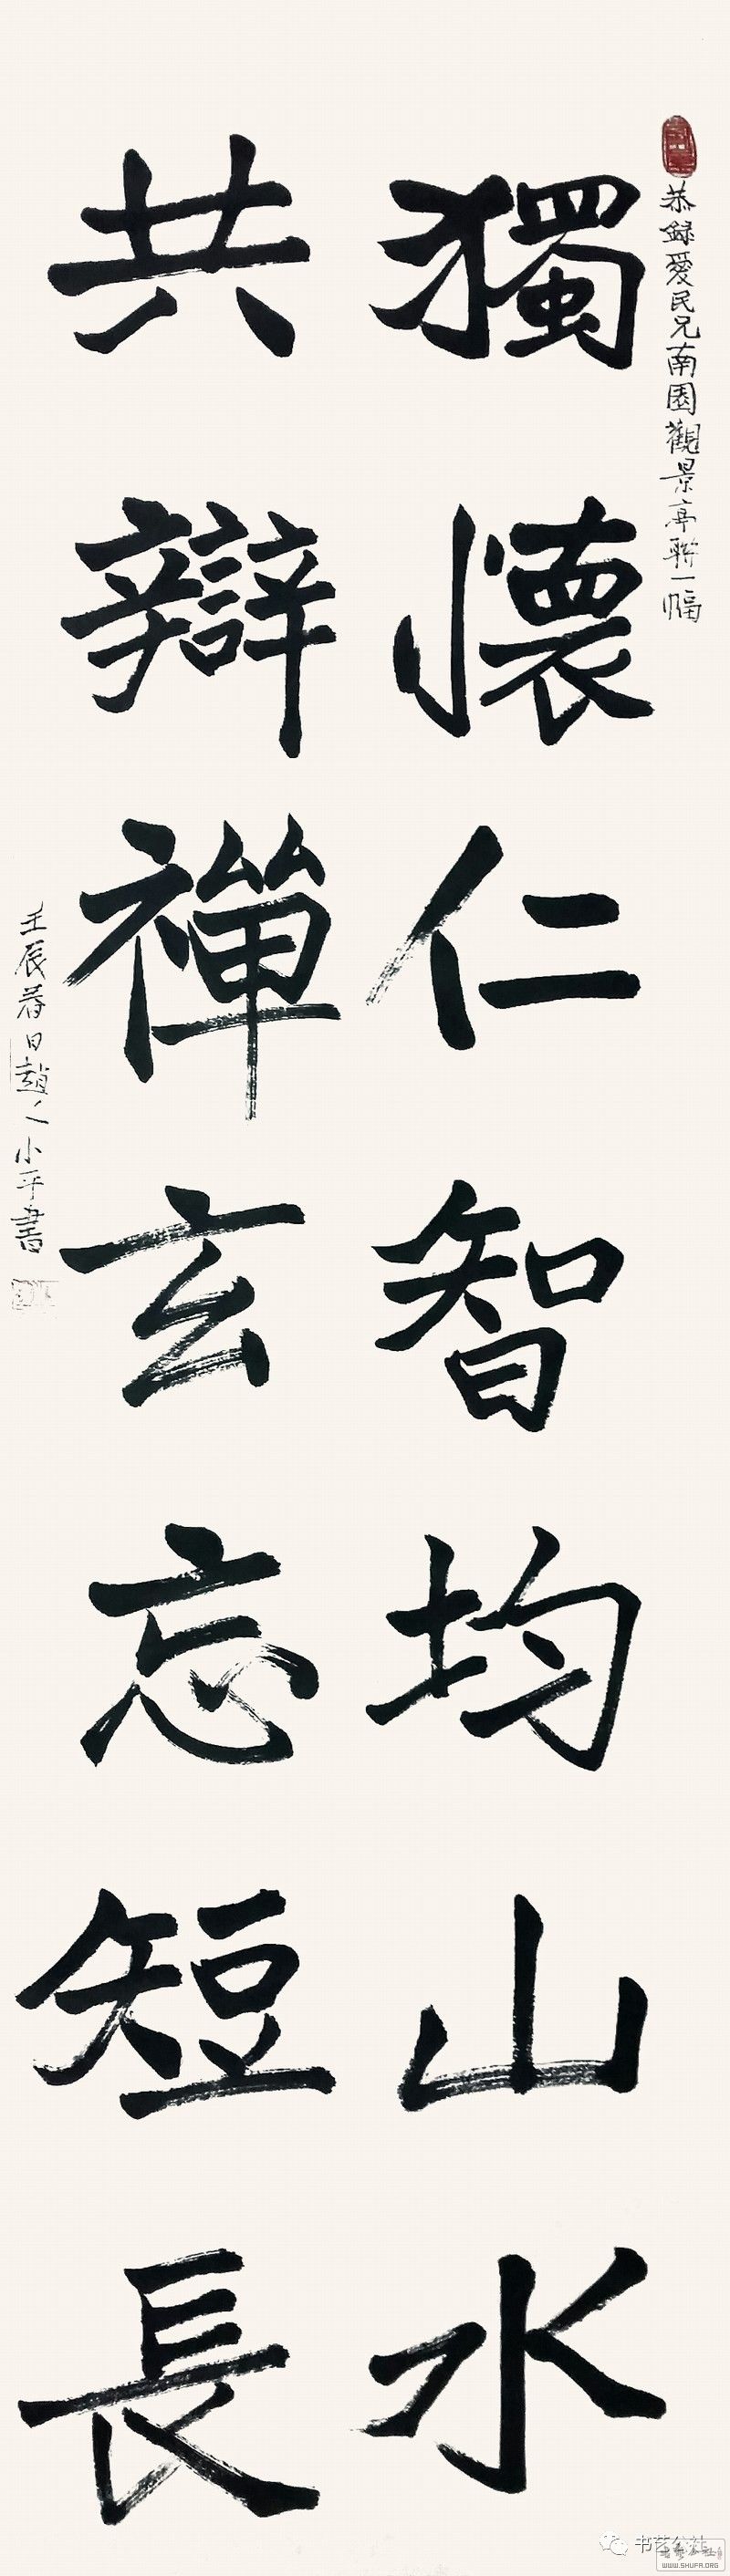 恭録愛民兄南園觀景亭聯一幅
獨懷仁智均山水
共辯禪玄忘短長
壬辰春日趙人小平書
书艺公社
WWW.SHUFA.ORG